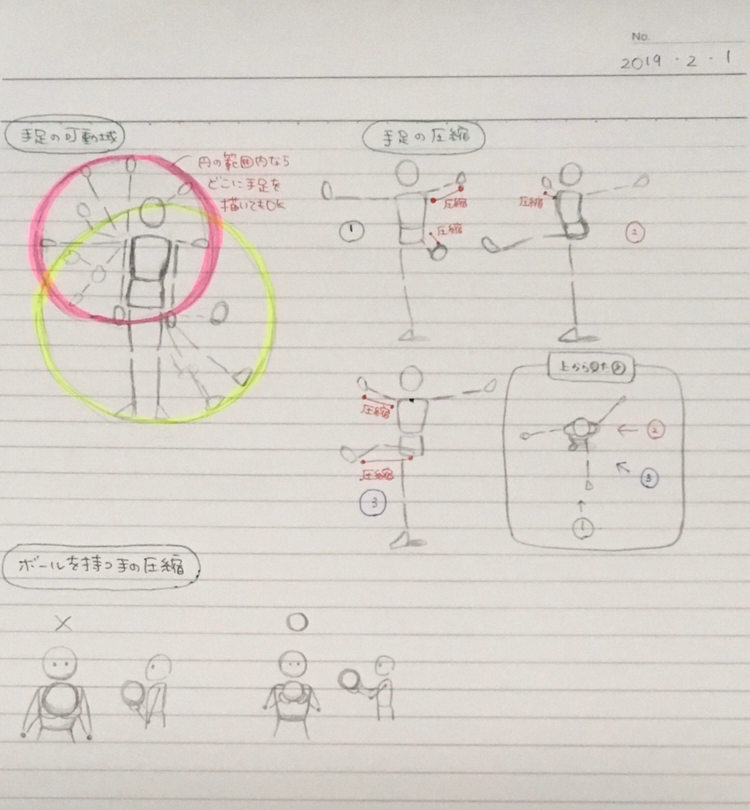 No.
2019・2・1
手足の可動域
円の範囲内なら
どこに手足を
描いてもOK
手足の圧縮
圧縮
圧縮
①
圧縮
②
圧縮
圧縮
③
上から見た図
②
③
①
ボールを持つ手の圧縮
×
○